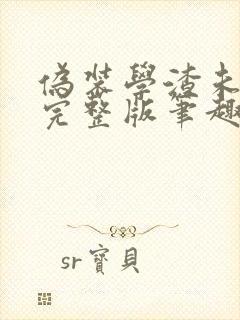 偽裝學渣未
完整版筆趣
sr寶貝